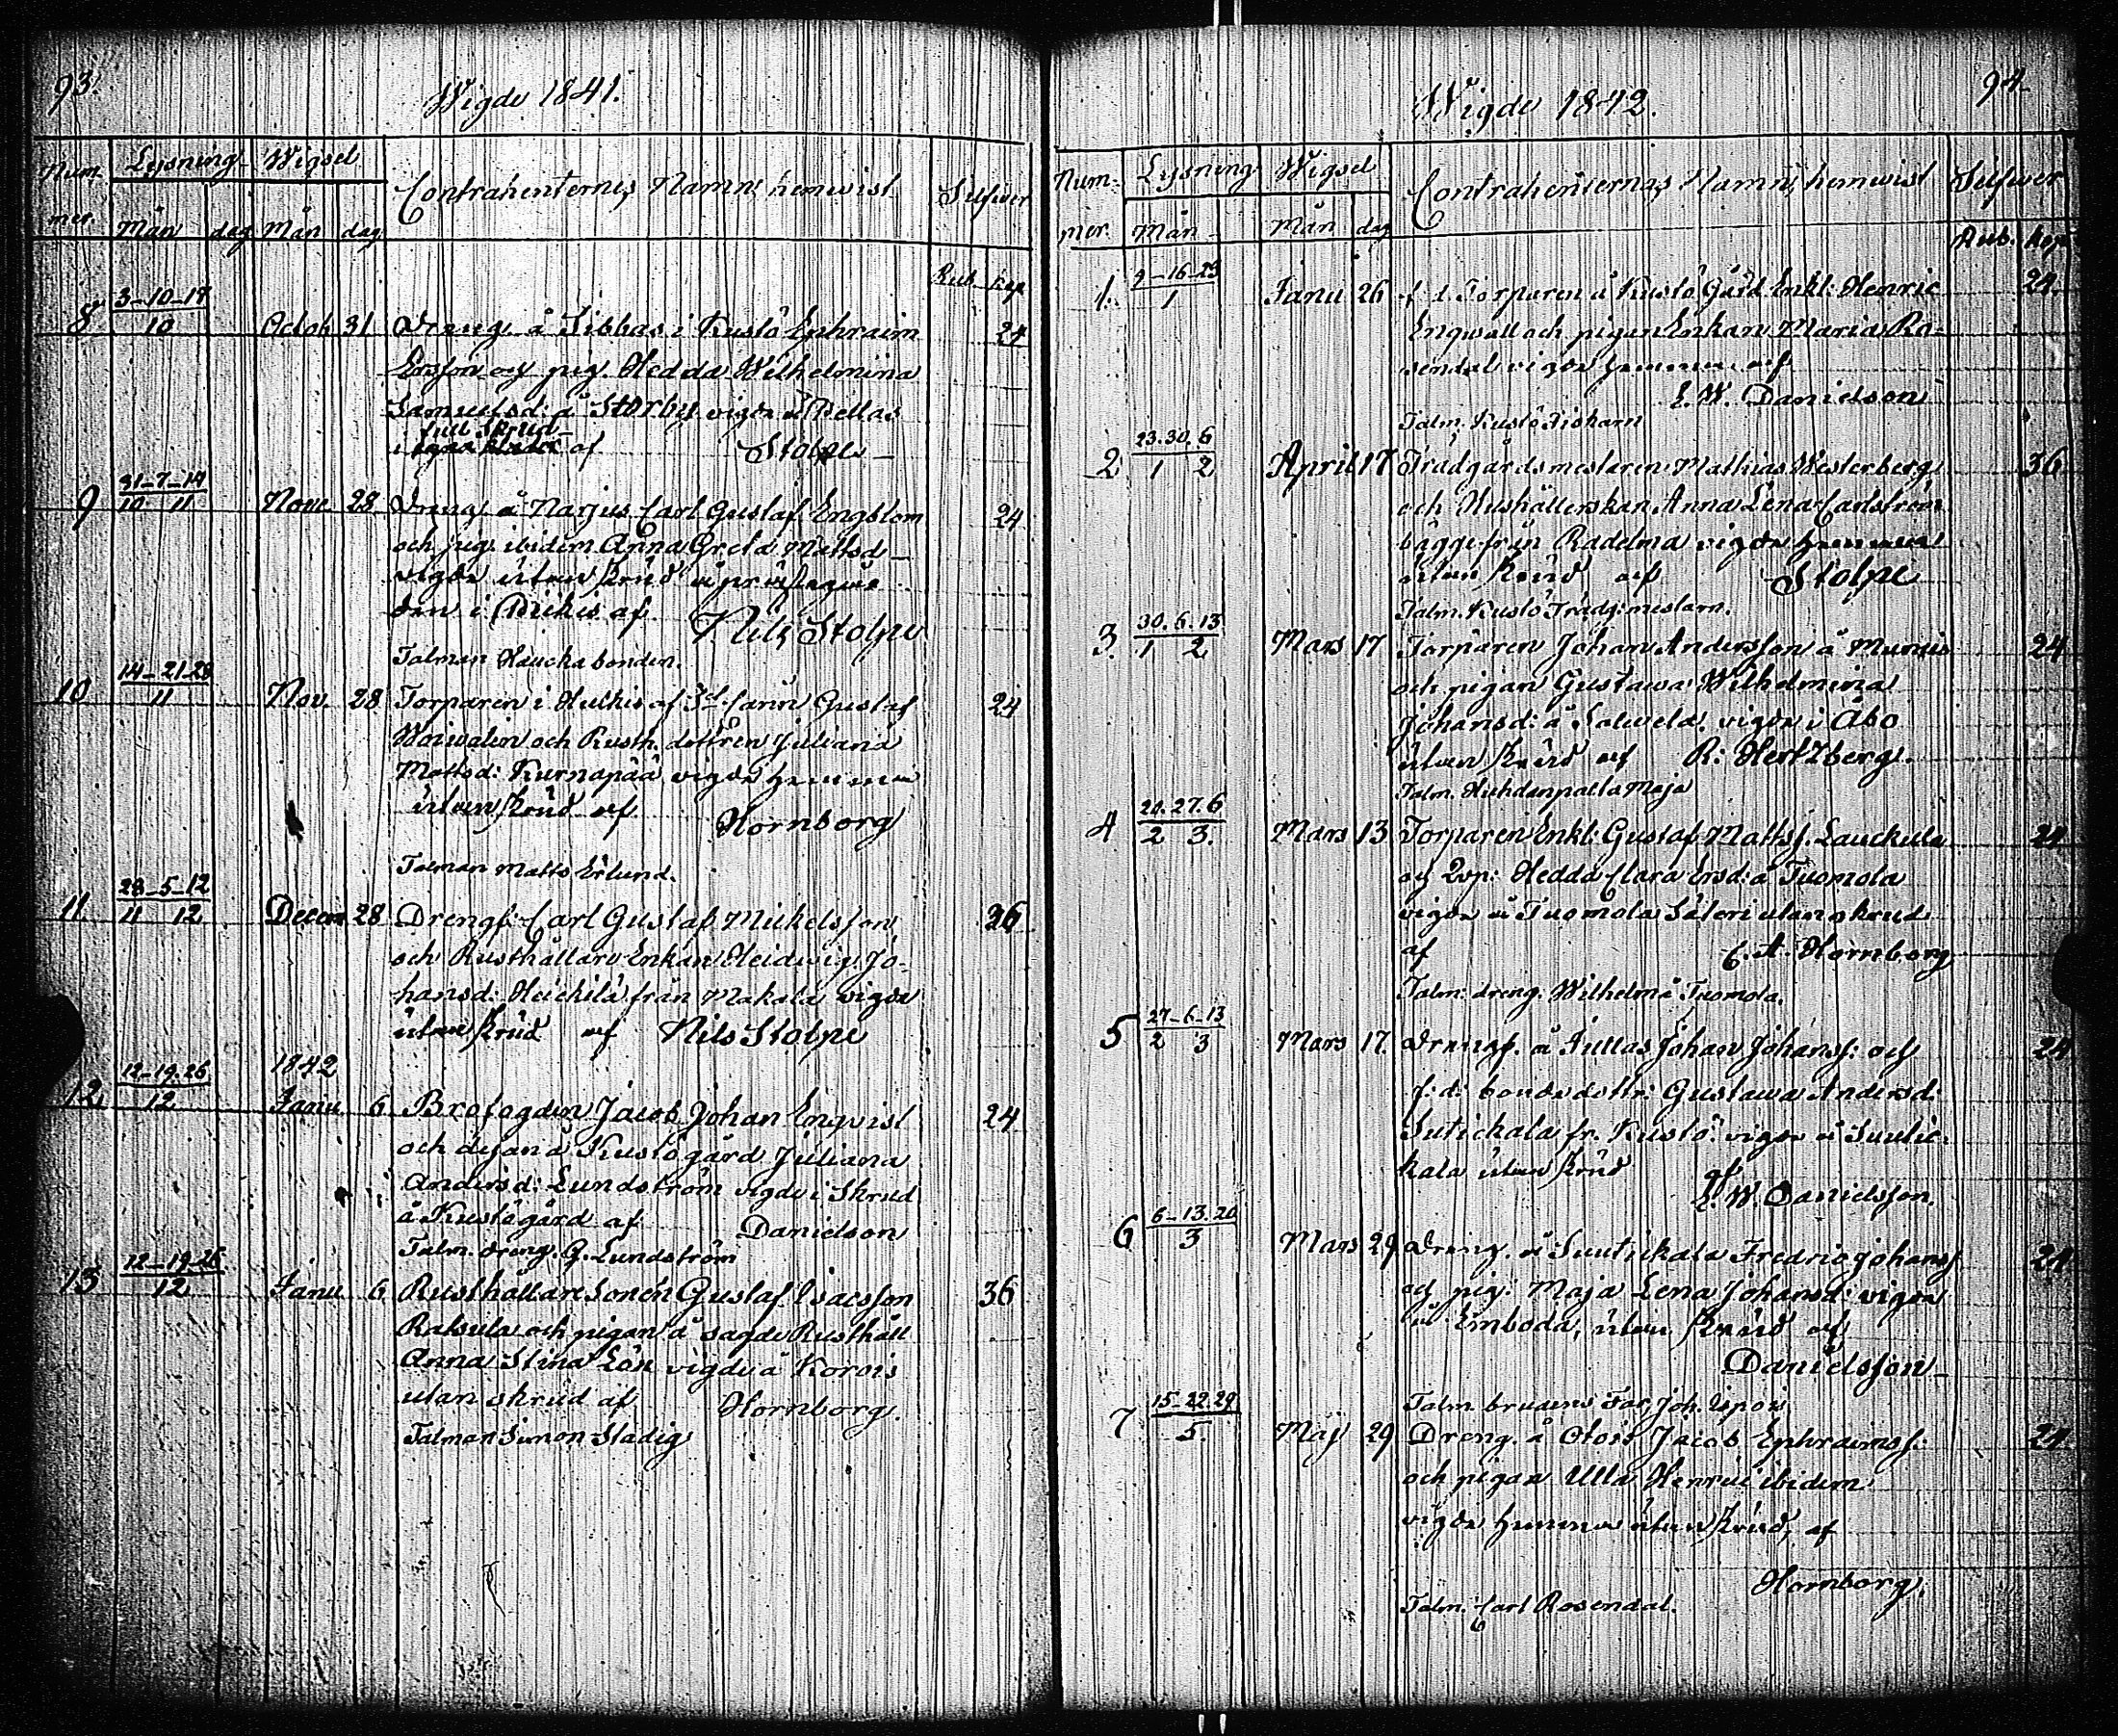 93.
Wigde 1841.
Num- Lysning Wigsel Contrahenternes Namn hemvist Silfwer
mer. Mån dag Mån dag
Rub. Kop
8 3-10-17/10 Octob 31 Dreng. å Sibbas i Kustö Ephraim 24
Ersson och pig. Hedda Wilhelmina
Samuelsd: å Storby vigde å Pellas
full Skrud
i af Stolpe
9 31-7-14/10 11 Nove 28 Drengs å Narjus Carl Gustaf Engblom 24
och pig. ibidem Anna Greta Mattsd
vigde utan skrud å prästegår
den i Pickis af Nils Stolpe
Talman Haucka bonden.
10 14-21-28/11 Nov. 28 Torparen i Huttis af 3d. Gustaf 24
Woiwalin och Rusth. dottren Juliana
Mattsd: Kurnapää vigde hemma
utan skrud af Hornborg
Talman Matts Erlund.
11 28-5-12/11 12 Decem 28 Drengs: Carl Gustaf Mickelsson 36
och Rusthållare Enkan Heidwig Jo-
hansd: Heickilä från Makala vigde
utan skrud af Nils Stolpe
1842
12. 12-19.26/12 Janu 6 Brofogden Jacob Johan Enqvist 24
och dejan å Kustö gård Juliana
Andersd: Lundström vigde i Skrud
å Kustögård af Danielson
Talm. dreng. G. Lundström
13 12-19-26/12 Janu 6 Rusthållare Sonen Gustaf Isacsson 36
Raksula och pigan å sagde Rusthåll
Anna Stina Lön vigde å Korois
utan skrud af Hornborg.
Talman Simon Stadig
94
Wigde 1842.
Num- Lysning Wigsel Contrahenternas Namn, hemvist Silfwer
mer. Mån Mån dag Rub. Kop
1. 9-16-23/1 Janu 26 f. d. Torparen å Kustö Gård Enkl: Henric 24.
Engwall och pigan Enkan Maria Ro-
sendal vigde hemma af
E. W. Danielson
Talm. Kustö Fiskarn
2 23.30.6/1 2 April 17 Trädgårdsmestaren Mathias Westerberg 36
och Hushållerskan Anna Lena Carlström
bägge från Radelma vigde hemma
utan skrud af Stolpe
Talm. Kustö Trädg: mestarn.
3. 30.6.13/1 2 Mars 17 Torparen Johan Andersson å Munus 24
och pigan Gustawa Wilhelmina
Johansd: å Salwela. vigde i Åbo
utan skrud af R: Hertzberg.
Talm. Huhdanpalla Maja
4 20.27.6/2 3. Mars 13 Torparen Enkl: Gustaf Mattss. Lauckula 24
och Hedda Clara Ersd: å Tuomola
vigde å Tuomola Säteri utan skrud
af C. A. Hornborg
Talm: dreng. Wilhelm å Tuomola.
5 27-6-13/2 3 Mars 17. Drengs. å Jullas Johan Johanss: och 24
f: d: bondedottr: Gustawa Andersd:
Sutickala fr. Kustö. vigde å Suutic-
kala utan skrud af
E. W. Danielsson.
6 6-13.20/3 Mars 29 Dreng. å Suutickala Fredric Johans 24
och pig: Maja Lena Johansd: vigde
å Emboda, utan skrud af
Danielsson
Talm. brudens Far Joh.
7 15-22.29/5. Maj 29 Dreng. å Otois Jacob Ephraimss: 24
och pigan Ulla Henric ibidem
vigde hemma utan skrud, af
Hornborg.
Talm. Carl Rosendal.